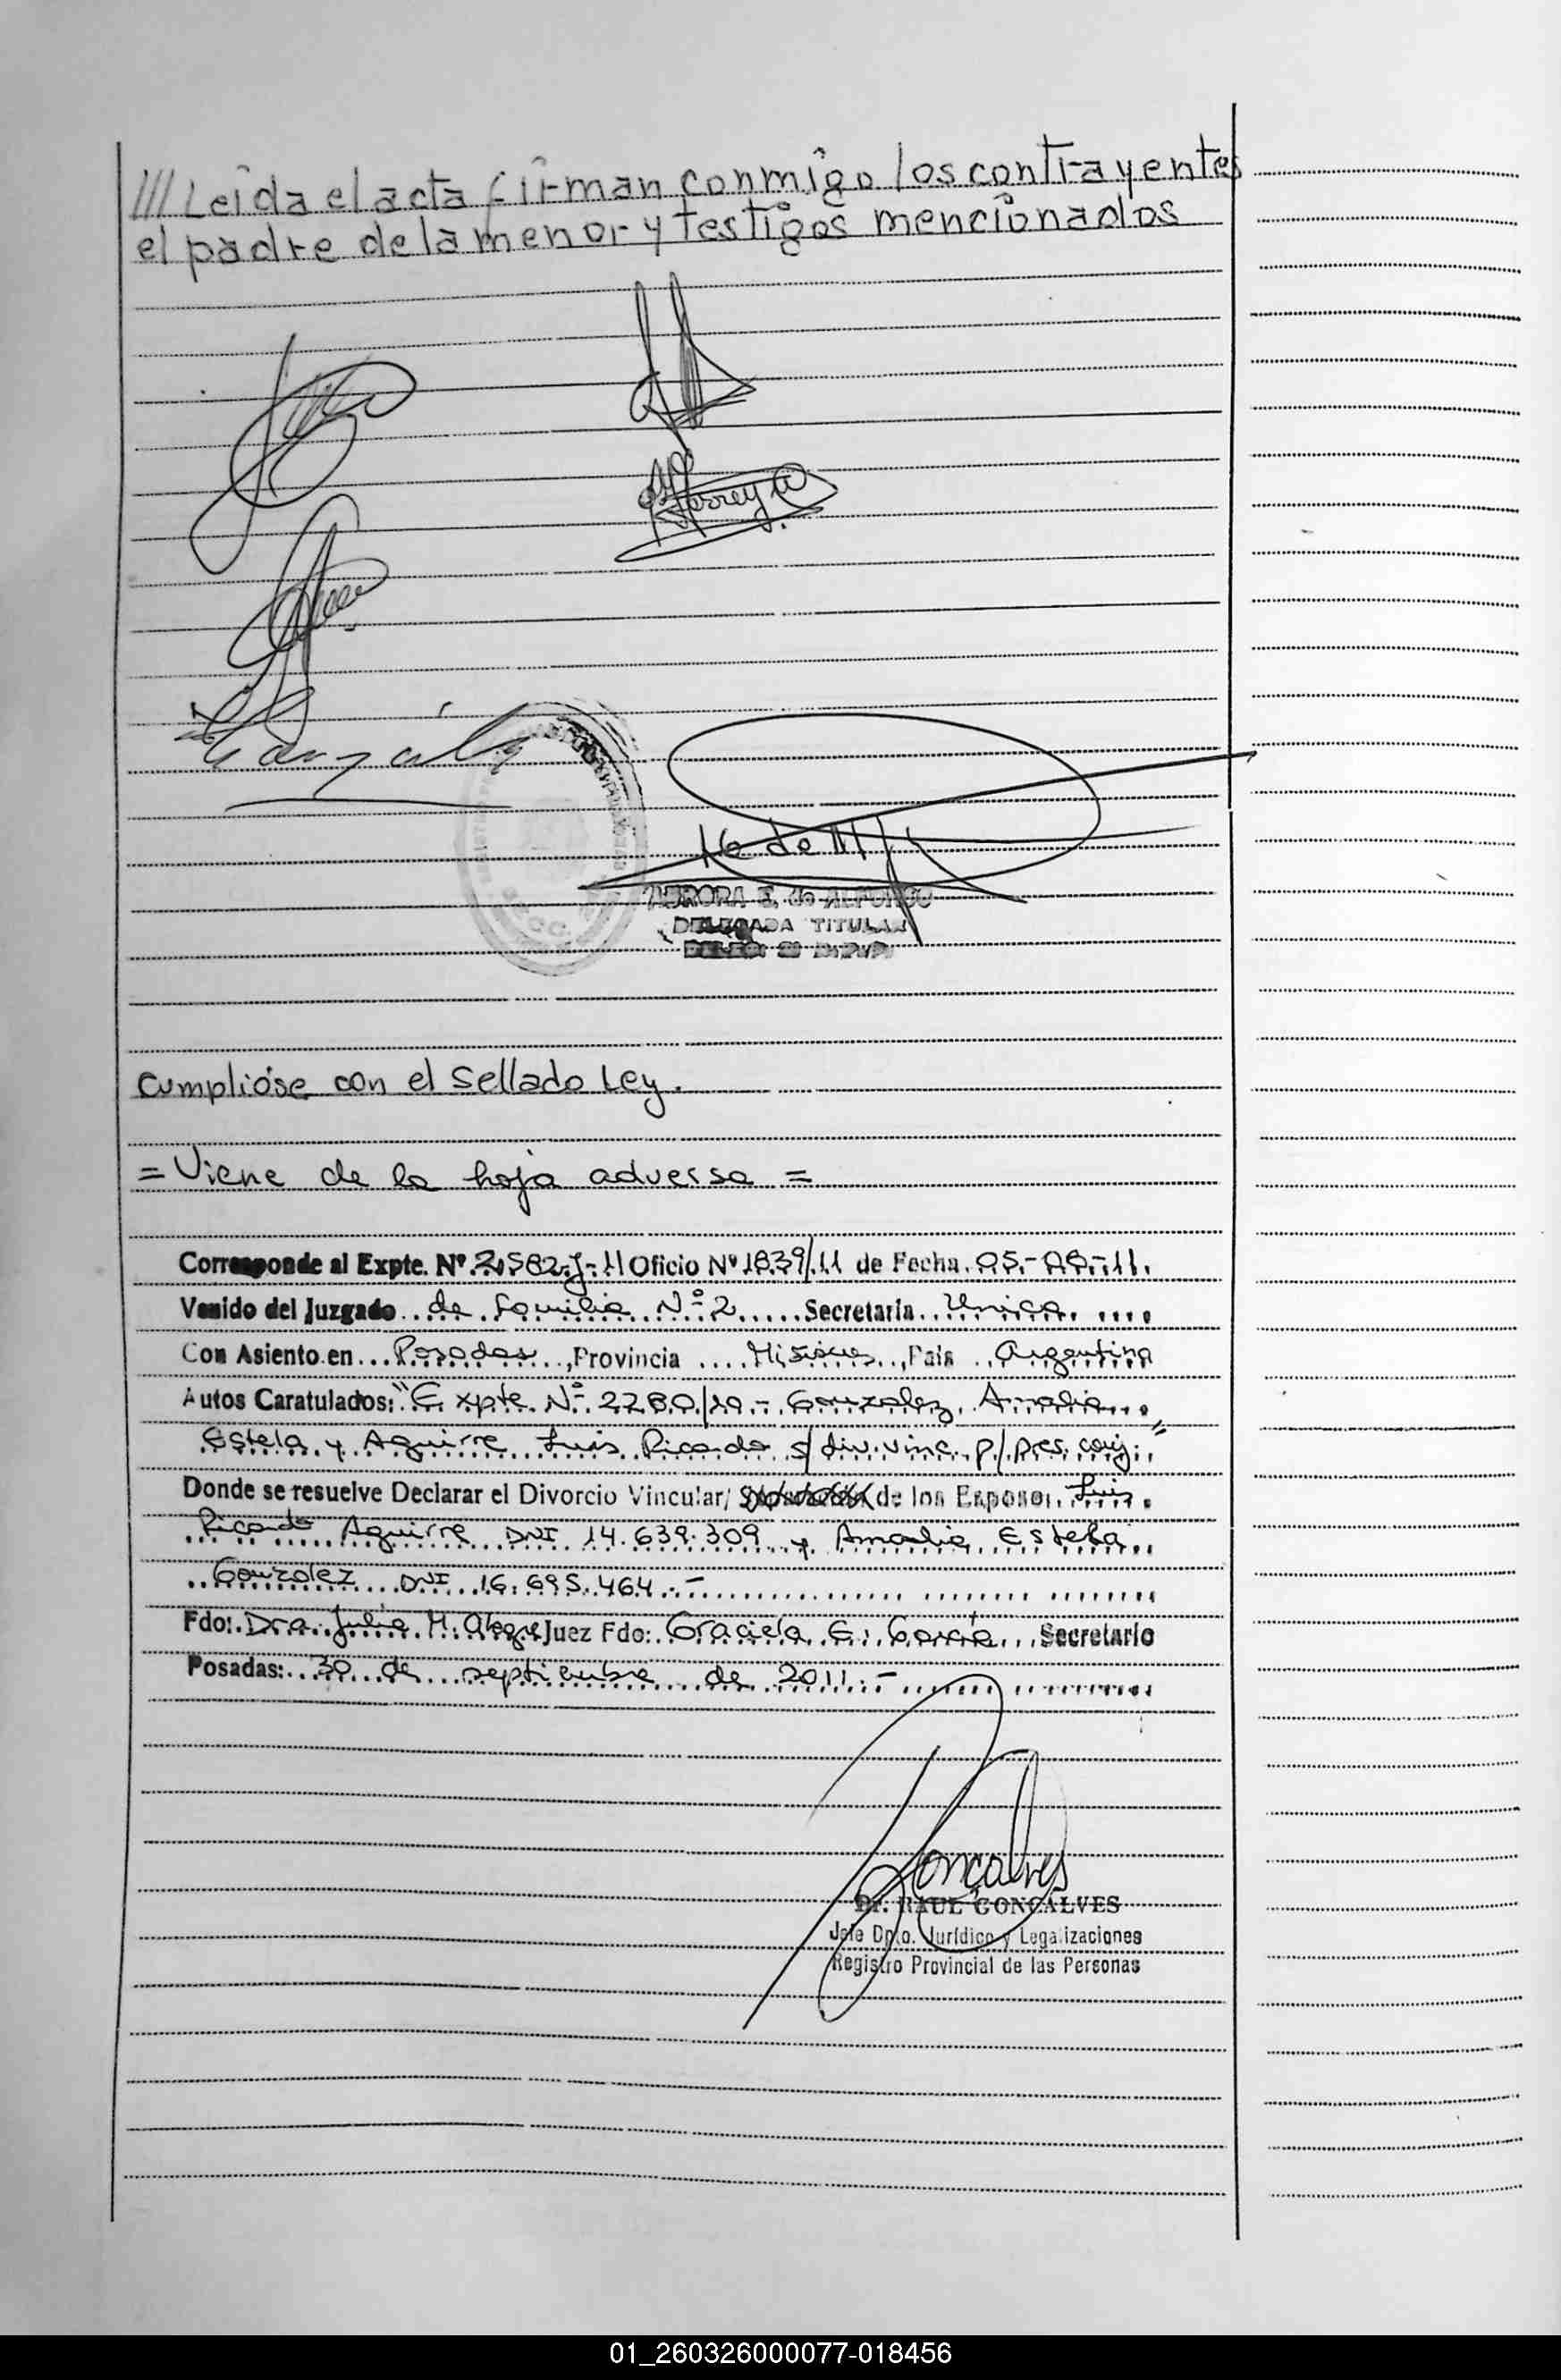 /// Leida el acta firman conmigo los contrayentes
el padre de la menor y testigos mencionados
Ferreyra
Gonzalez
16 de
AURORA E. de ALFONSO
DELEGADA TITULAR
Cumplióse con el Sellado Ley.
= Viene de la hoja adversa =
Corresponde al Expte. Nº 2582-J-11 Oficio Nº 1839/11 de Fecha 05-08-11.
Venido del Juzgado de Familia Nº 2 Secretaría Unica
Con Asiento en Posadas, Provincia Misiones, País Argentina
Autos Caratulados: "Expte. Nº 2280/10.- Gonzalez, Amalia
Estela y Aguirre Luis Ricardo s/ div. vinc. p/ pres. conj."
Donde se resuelve Declarar el Divorcio Vincular/ de los Esposos Luis
Ricardo Aguirre DNI 14.639.309 y Amalia Estela
Gonzalez DNI 16.695.464.-
Fdo: Dra. Julia M. Alegre Juez Fdo: Graciela E. García Secretario
Posadas: 30 de septiembre de 2011.-
Goncalves
Dr. RAUL GONCALVES
Jefe Dpto. Jurídico y Legalizaciones
Registro Provincial de las Personas
01_260326000077-018456